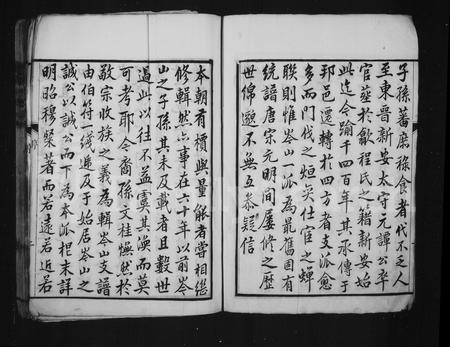 子孫蕃庶祿食者代不乏人
至東晋新安太守元譚公卒
官塟於歙程氏之籍新安始
此迄今踰千四百年其承傳于
邦邑遷轉於四方者支派愈
多而門伐之烜奕仕宦之蟬
聯則惟岑山一派為最舊固有
統譜唐宋元明間屢修之歷
世綿邈不無互叅短信
本朝有櫝與量能者嘗相繼
修輯然亦事在六十年以前岑
山之子孫其未及載者且數世
過此以徃不益虞其渙而莫
可考耶令裔孫文桂愀然於
敬宗收族之義為輯岑山支譜
由伯符一綫遞及于始居岑山之
誠公以誠公而下為本派把末詳
明昭穆燦著而若遠若近若